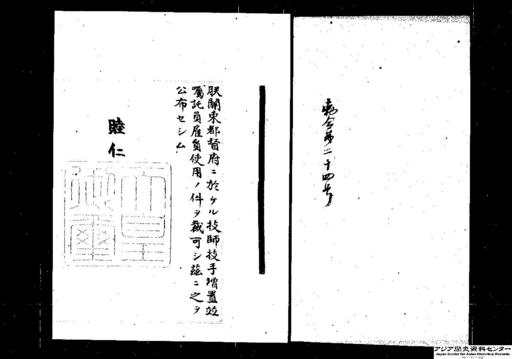 勅令第二十四号
朕関東都督府ニ於ケル技師技手増置並
嘱託員雇員使用ノ件ヲ裁可シ茲ニ之ヲ
公布セシム
睦仁
天皇
御璽
アジア歴史資料センター
Japan Center for Asian Historical Records